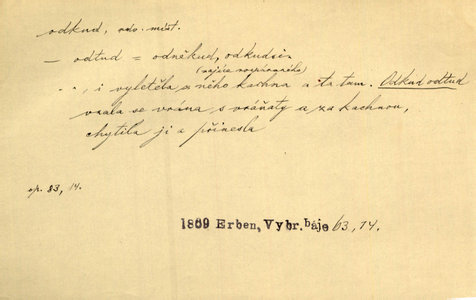 odkud, náv. míst.
— odtud = odněkud, odkudsi
(zajíce rozpáraného)
" , i vyletěla z něho kachna a ta tam. Odkud odtud
vzala se vrána s vráňaty a za kachnou,
chytila ji a přinesla
op. 83, 14.
1869 Erben, Vybr. báje 63, 14.